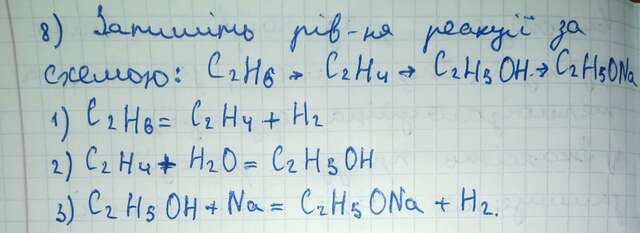 8) Запишіть рів-ня реакції за
схемою: C₂H₆ → C₂H₄ → C₂H₅OH → C₂H₅ONa
1) C₂H₆ = C₂H₄ + H₂
2) C₂H₄ + H₂O = C₂H₅OH
3) C₂H₅OH + Na = C₂H₅ONa + H₂.